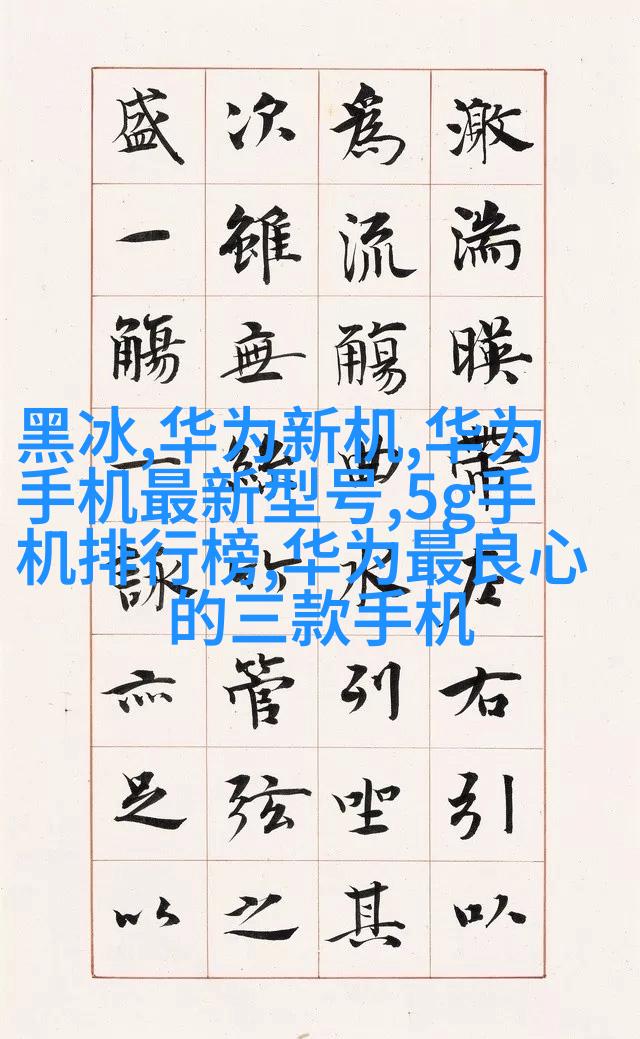 激湍暎帶左右引以
為流觴曲水列坐其
次雖無絲竹管弦之
盛一觴一詠亦足以
黑冰,华为新机,华为
手机最新型号,5g手
机排行榜,华为最良心
的三款手机